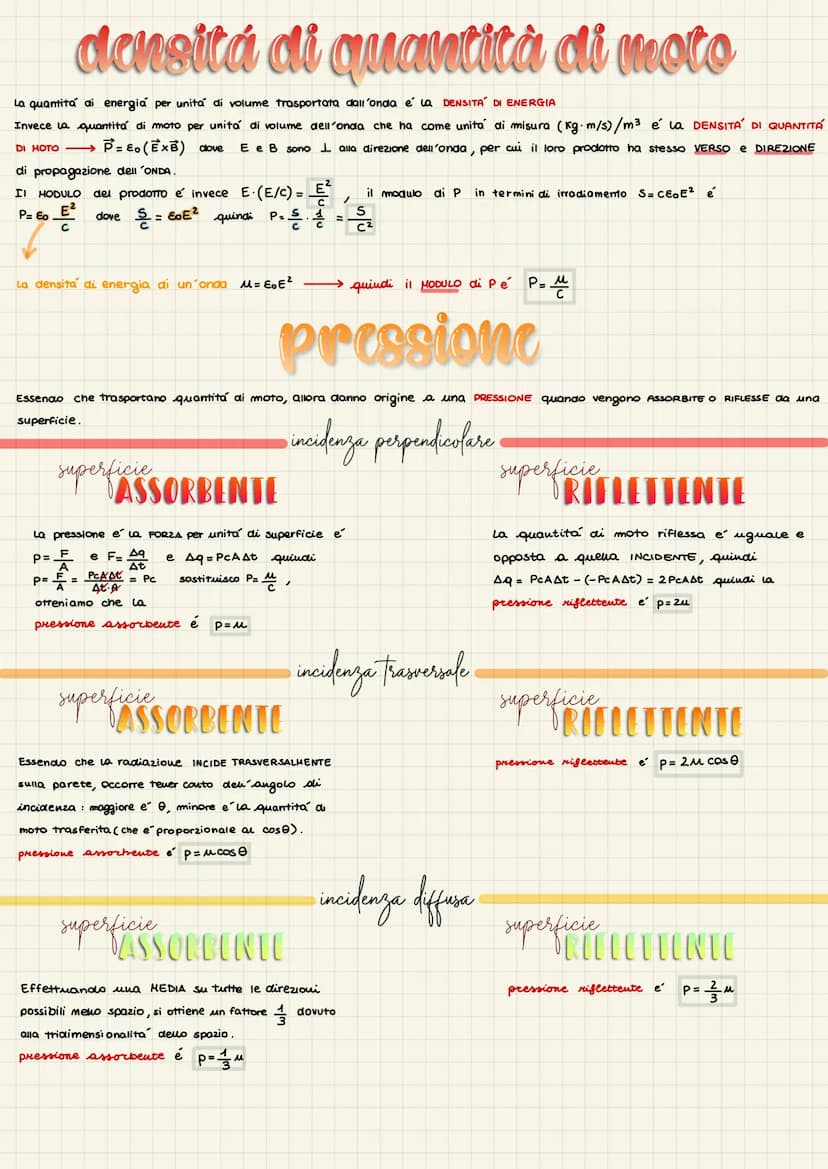 densitá di quantità di moto
La quantita' di energia' per unita' di volume trasportata dall'onda e' la DENSITA' DI ENERGIA
Invece la quantita' di moto per unita' di volume dell'onda che ha come unita' di misura (Kg·m/s)/m³ e' la DENSITA' DI QUANTITA'
DI MOTO → P⃗ = ε₀(E⃗×B⃗) dove E e B sono ⊥ alla direzione dell'onda, per cui il loro prodotto ha stesso VERSO e DIREZIONE
di propagazione dell'ONDA.
Il MODULO del prodotto e' invece E·(E/C) = E²/C, il modulo di P in termini di irradiamento S=CE₀E² e'
P= ε₀ E²/C dove S/C = ε₀E² quindi P= S/C · 1/C = S/C²
La densita' di energia di un'onda μ= ε₀E² → quindi il MODULO di P e' P= μ/C
pressione
Essendo che trasportano quantita' di moto, allora danno origine a una PRESSIONE quando vengono ASSORBITE O RIFLESSE da una
superficie.
incidenza perpendicolare
superficie ASSORBENTE
La pressione e' la FORZA per unita' di superficie e'
p= F/A e F= Δq/Δt e Δq=PCAΔt quindi
p= F/A = PCAΔt/Δt·A = PC sostituisco P= μ/C,
otteniamo che la
pressione assorbente é p=μ
superficie RIFLETTENTE
La quantita' di moto riflessa e' uguale e
opposta a quella INCIDENTE, quindi
Δq = PCAΔt - (-PCAΔt) = 2PCAΔt quindi la
pressione riflettente e' p=2μ
incidenza trasversale
superficie ASSORBENTE
Essendo che la radiazione INCIDE TRASVERSALMENTE
sulla parete, occorre tener conto dell'angolo di
incidenza: maggiore e' θ, minore e' la quantita' di
moto trasferita (che e' proporzionale al cosθ).
pressione assorbente e' p=μcosθ
superficie RIFLETTENTE
pressione riflettente e' p= 2μ cosθ
incidenza diffusa
superficie ASSORBENTE
Effettuando una MEDIA su tutte le direzioni
possibili nello spazio, si ottiene un fattore 1/3 dovuto
alla tridimensionalita' dello spazio.
pressione assorbente é p= 1/3 μ
superficie RIFLETTENTE
pressione riflettente e' p= 2/3 μ